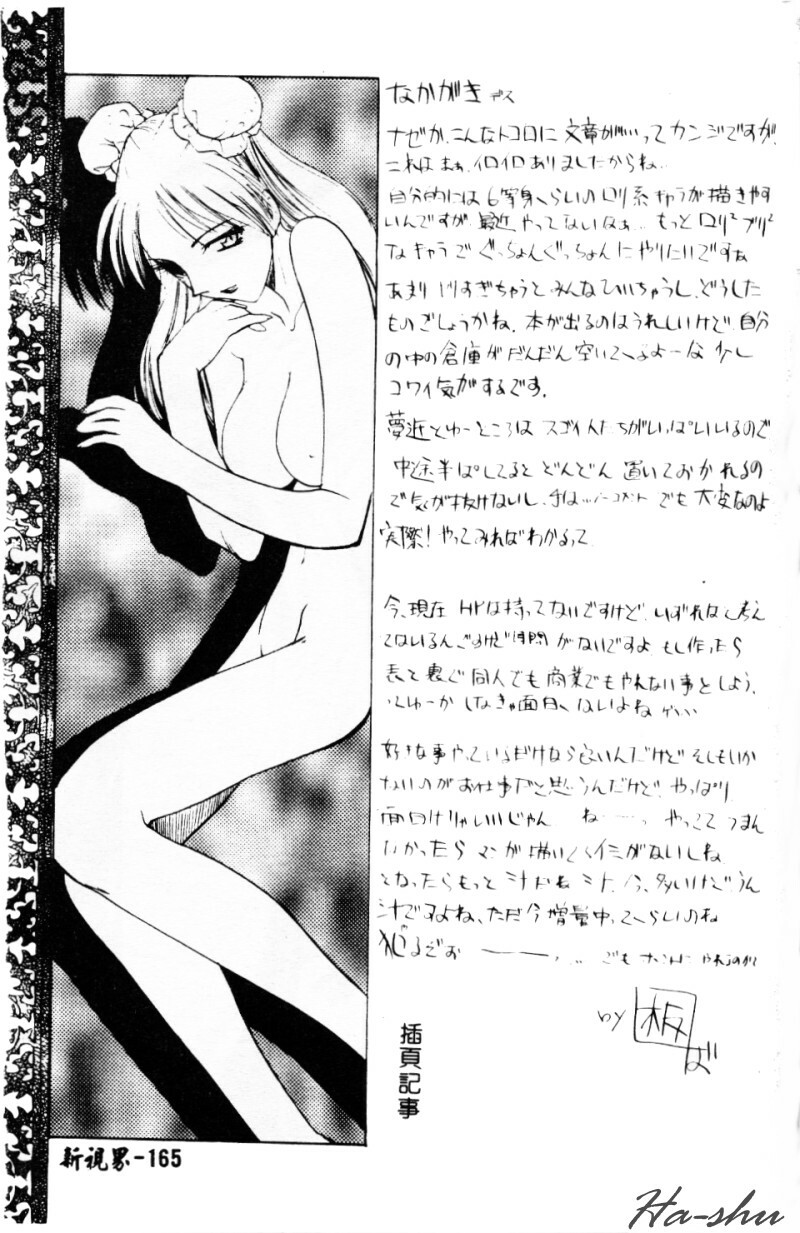 なかがきデス
ナゼか、こんなトコロに文章がいってカンジですが、
これはまぁ、イロイロありましたからね…
自分的には6等身くらいのロリ系キャラが描きやす
いんですが、最近やってないなぁ… もっとロリ²ブリ²
なキャラでぐっちょんぐっちょんにやりたいですね
あまりすぎちゃうとみんなひいちゃうし、どうした
ものでしょうかね、本が出るのはうれしいけど、自分
の中の倉庫がだんだん空いてくるよーな少し
コワイ気がするです。
夢近とゆーところはスゴイ人たちがいっぱいいるので
中途半ぱしてるとどんどん置いておかれるの
で気が抜けないし、でも大変なのよ
実際!やってみればわかるって
今、現在HPは持ってないですけど、いずれはと考え
てはいるんですけど時間がないですよ もし作ったら
表と裏で同人でも商業でもやれない事としよう、
ってゆーかしなきゃ面白くないよね
好きな事やっているだけなら良いんだけどそーもいか
ないのがお仕事だと思うんだけど、やっぱり
面白けりゃいいじゃん ねー やってて つまん
なかったらマンガ描いてくイミがないしね
となったらもっと汁だね 汁、今、多いけどうん
汁ですよね、ただ今増量中ってくらいのね
でも
by 板ば
插頁記事
新視界-165
Ha-shu